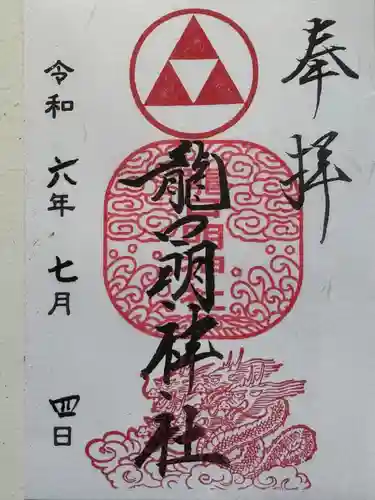 奉拝
龍口明神社
令和六年七月四日